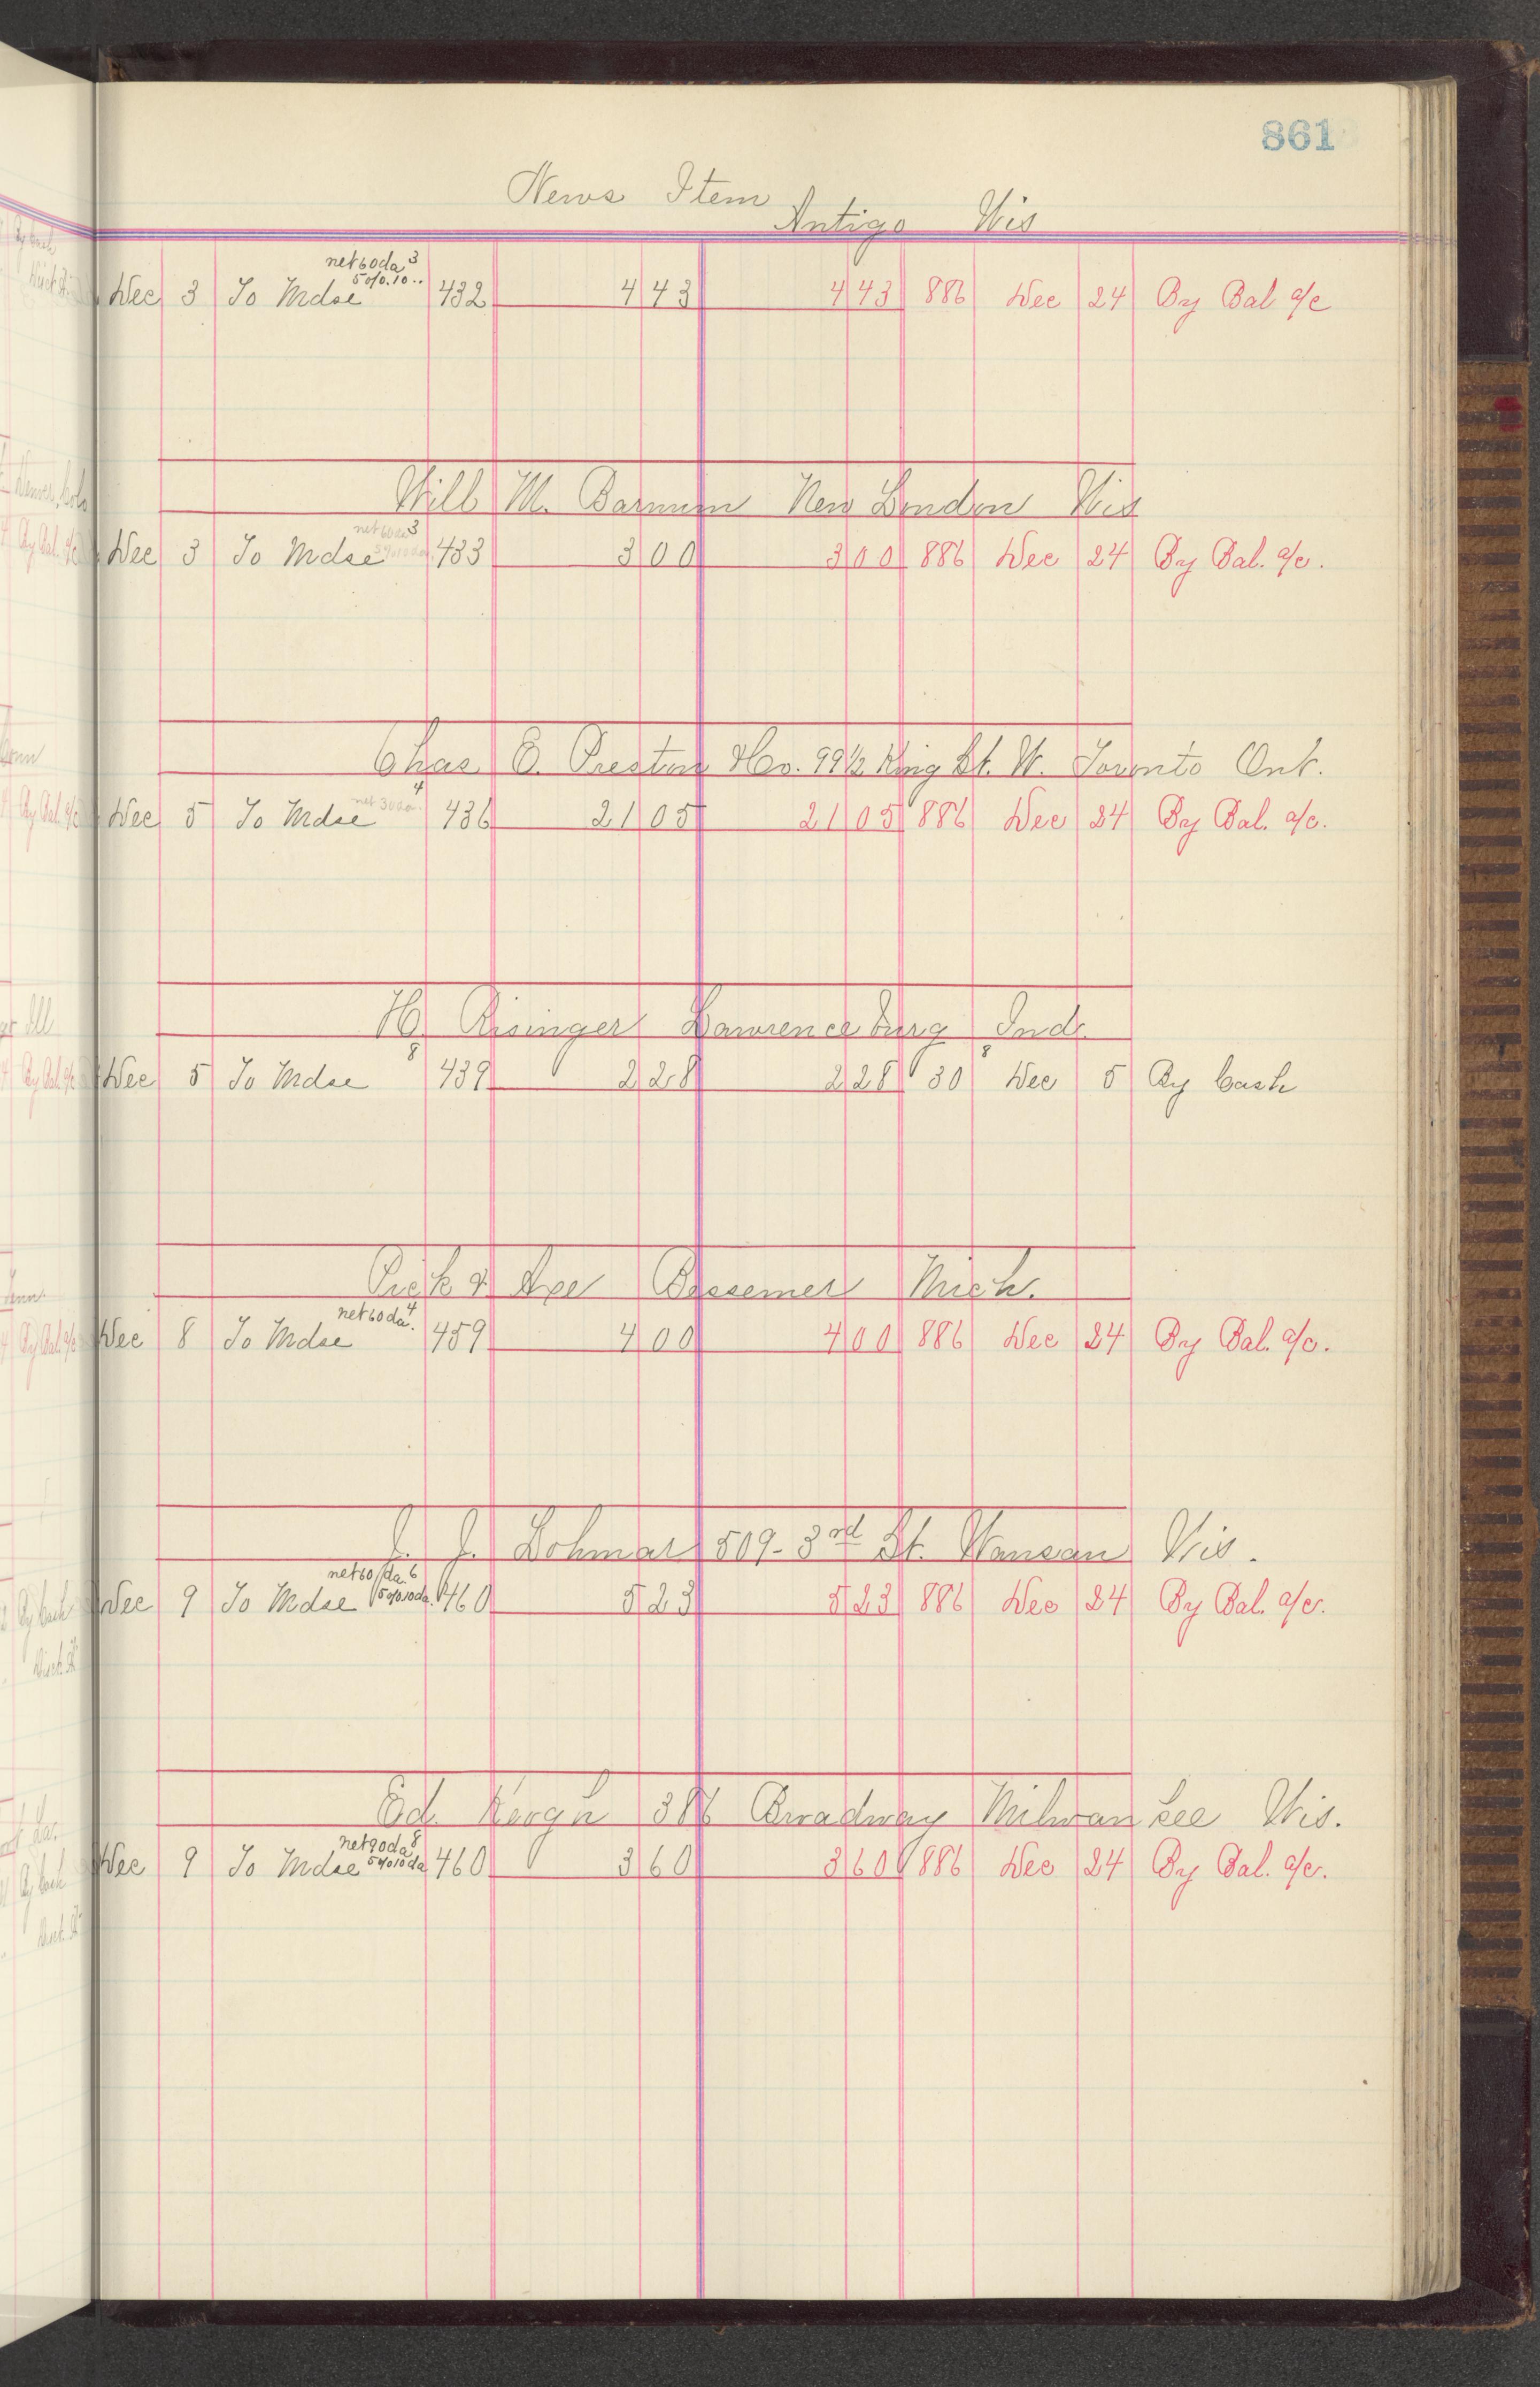 861
News Item
Antigo Wis
net 60 da 3
5% 10 ..
Dec 3 To Mdse 432 4 43 4 43 886 Dec 24 By Bal a/c
Will M. Barnum New London Wis
net 60 da 3
5% 10 da
Dec 3 To Mdse 433 3 00 3 00 886 Dec 24 By Bal. a/c.
Chas E. Preston & Co. 99 1/2 King St. W. Toronto Ont.
net 30 da. 4
Dec 5 To Mdse 436 21 05 21 05 886 Dec 24 By Bal. a/c.
H. Risinger Lawrenceburg Ind.
8 8
Dec 5 To Mdse 439 2 28 2 28 30 Dec 5 By Cash
Pick & Axe Bessemer Mich.
net 60 da. 4
Dec 8 To Mdse 459 4 00 4 00 886 Dec 24 By Bal. a/c.
J. J. Lohmar 509 - 3rd St. Wausau Wis.
net 60 da. 6
5% 10 da.
Dec 9 To Mdse 460 5 23 5 23 886 Dec 24 By Bal. a/c.
Ed. Keogh 386 Broadway Milwaukee Wis.
net 90 da 8
5% 10 da
Dec 9 To Mdse 460 3 60 3 60 886 Dec 24 By Bal. a/c.